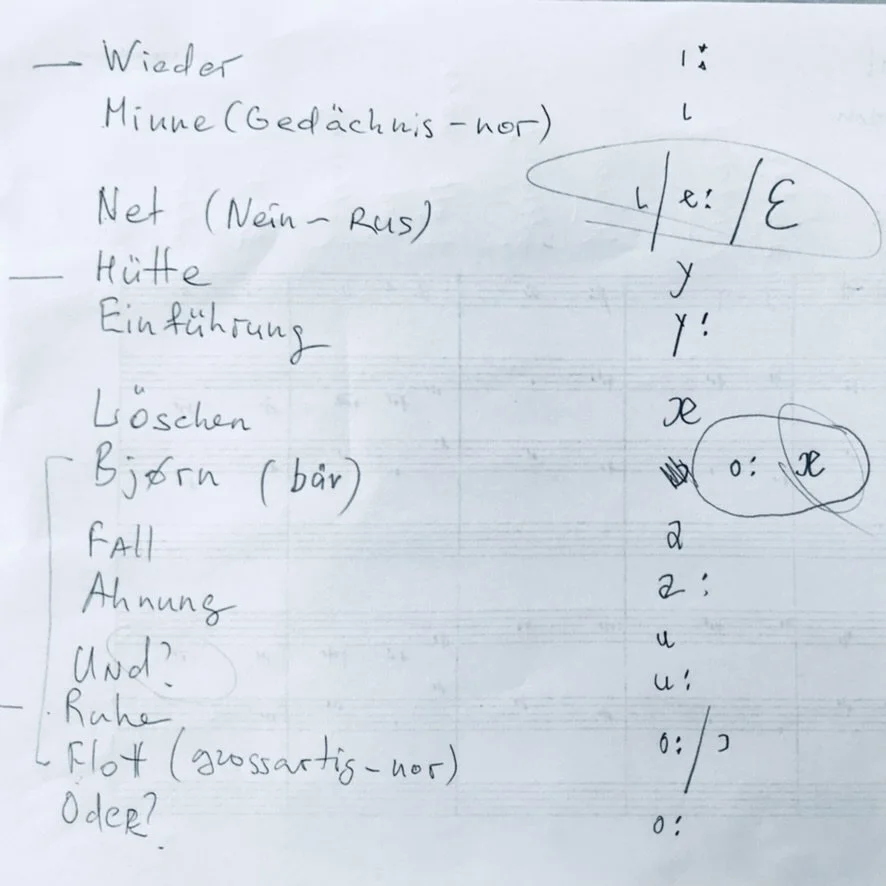 — Wieder i:
Minne (Gedächnis - nor) ɩ
Net (Nein - Rus) ɩ / e: / Ɛ
— Hütte y
Einführung y:
Löschen æ
Bjørn (bär) o: æ
FAll a
Ahnung a:
Und? u
- Ruhe u:
Flott (grossartig - nor) o: / ɔ
Oder? o: